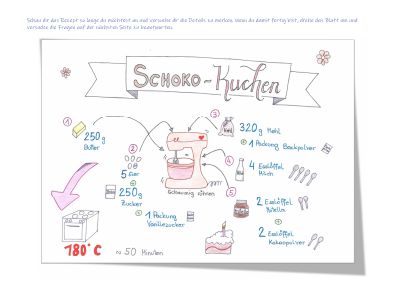 Schau dir das Rezept so lange du möchtest an und versuche dir die Details zu merken, wenn du damit fertig bist, drehe das Blatt um und
versuche die Fragen auf der nächsten Seite zu beantworten.
SCHOKO-Kuchen
1
250g
Butter
2
5 Eier
+
250g
Zucker
+
1 Packung
Vanillezucker
3
320g Mehl
+
1 Packung Backpulver
4
4 Esslöffel
Milch
5
2 Esslöffel
Nutella
+
2 Esslöffel
Kakaopulver
Schaumig rühren
180°C
~ 50 Minuten